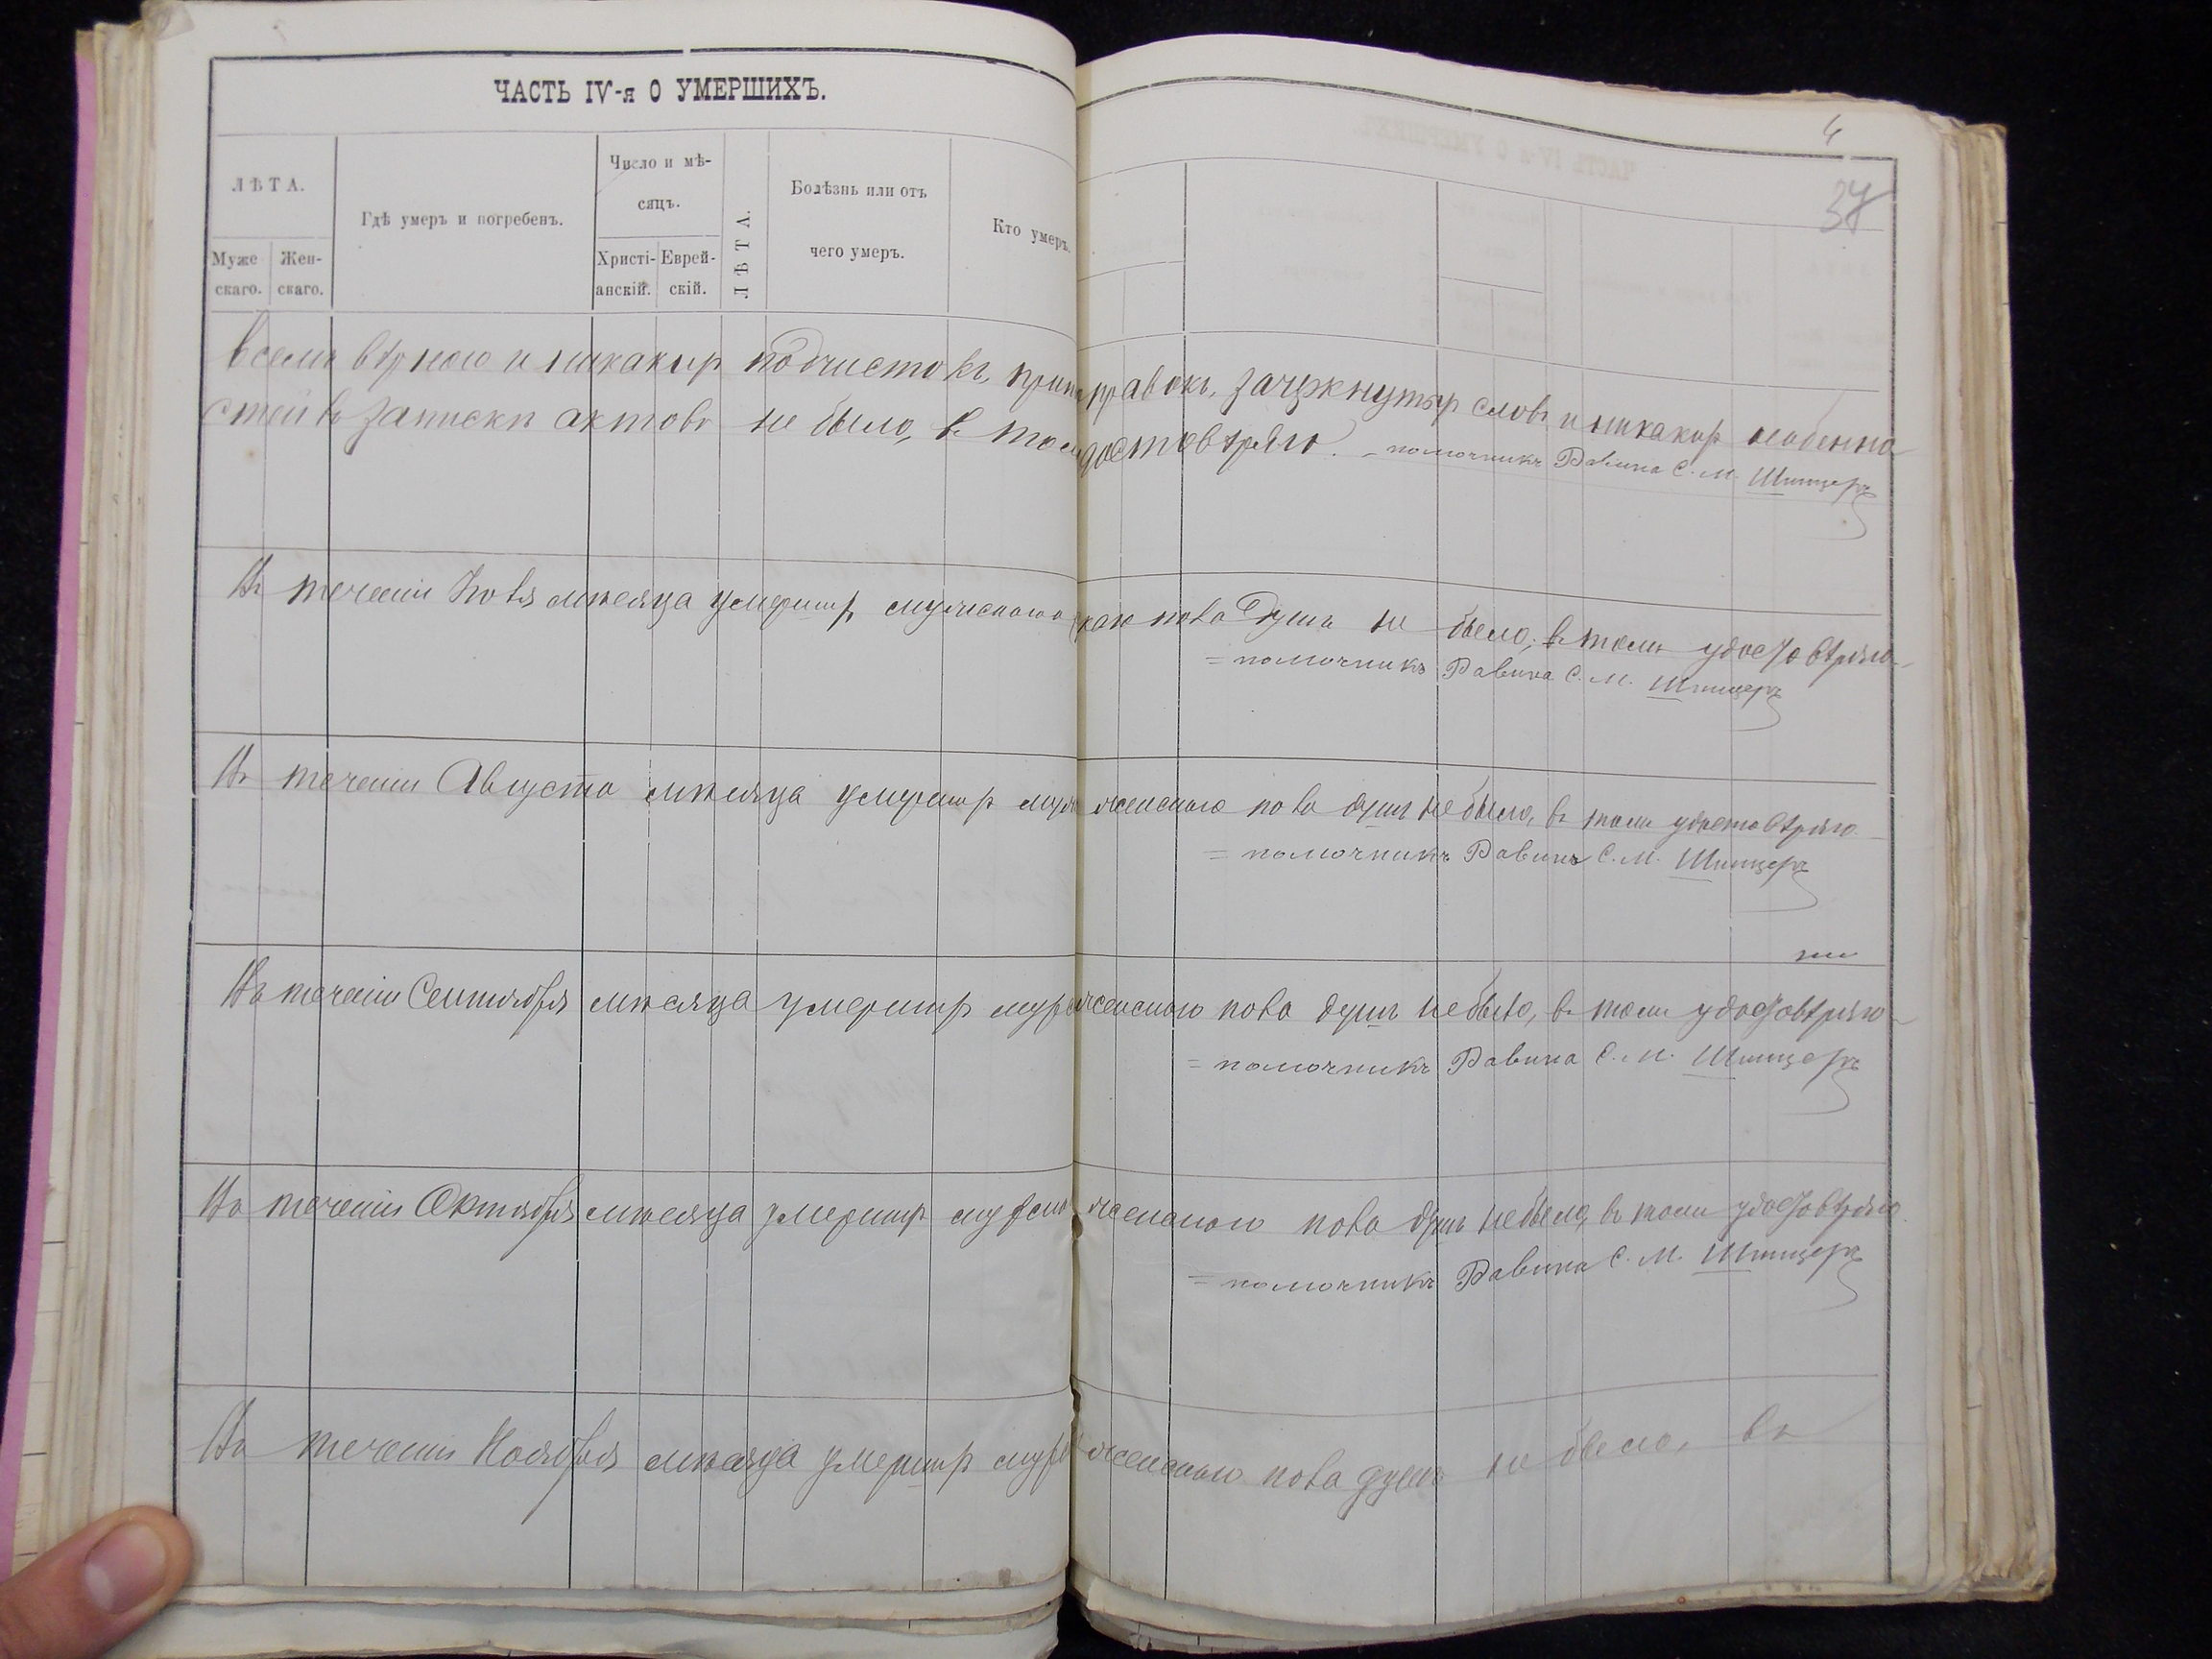 ЧАСТЬ IV-я О УМЕРШИХЪ.
4
37
ЛѢТА.
Муже
скаго.
Жен-
скаго.
Гдѣ умеръ и погребенъ.
Число и мѣ-
сяцъ.
Христі-
анскій.
Еврей-
скій.
ЛѢТА.
Болѣзнь или отъ
чего умеръ.
Кто умеръ.
всемъ вѣрною и никакихъ подчистокъ, правокъ, зачеркнутыхъ словъ и никакихъ особенно
стей въ записки актовъ не было, въ томъ достовѣряю. помочникъ Равина С. М. Шпицеръ
Въ теченіи мѣсяца умершихъ мужескаго пола душъ не было, въ томъ удостовѣряю
= помочникъ Равина С. М. Шпицеръ
Въ теченіи Августа мѣсяца умершихъ муж женскаго пола душъ не было, въ томъ удостовѣряю
= помочникъ Равина С. М. Шпицеръ
Въ теченіи Сентября мѣсяца умершихъ муж женскаго пола душъ не было, въ томъ удостовѣряю
= помочникъ Равина С. М. Шпицеръ
Въ теченіи Октября мѣсяца умершихъ женскаго пола душъ не было, въ томъ удостовѣряю
= помочникъ Равина С. М. Шпицеръ
Въ теченіи Ноября мѣсяца умершихъ муж женскаго пола душъ не было, въ